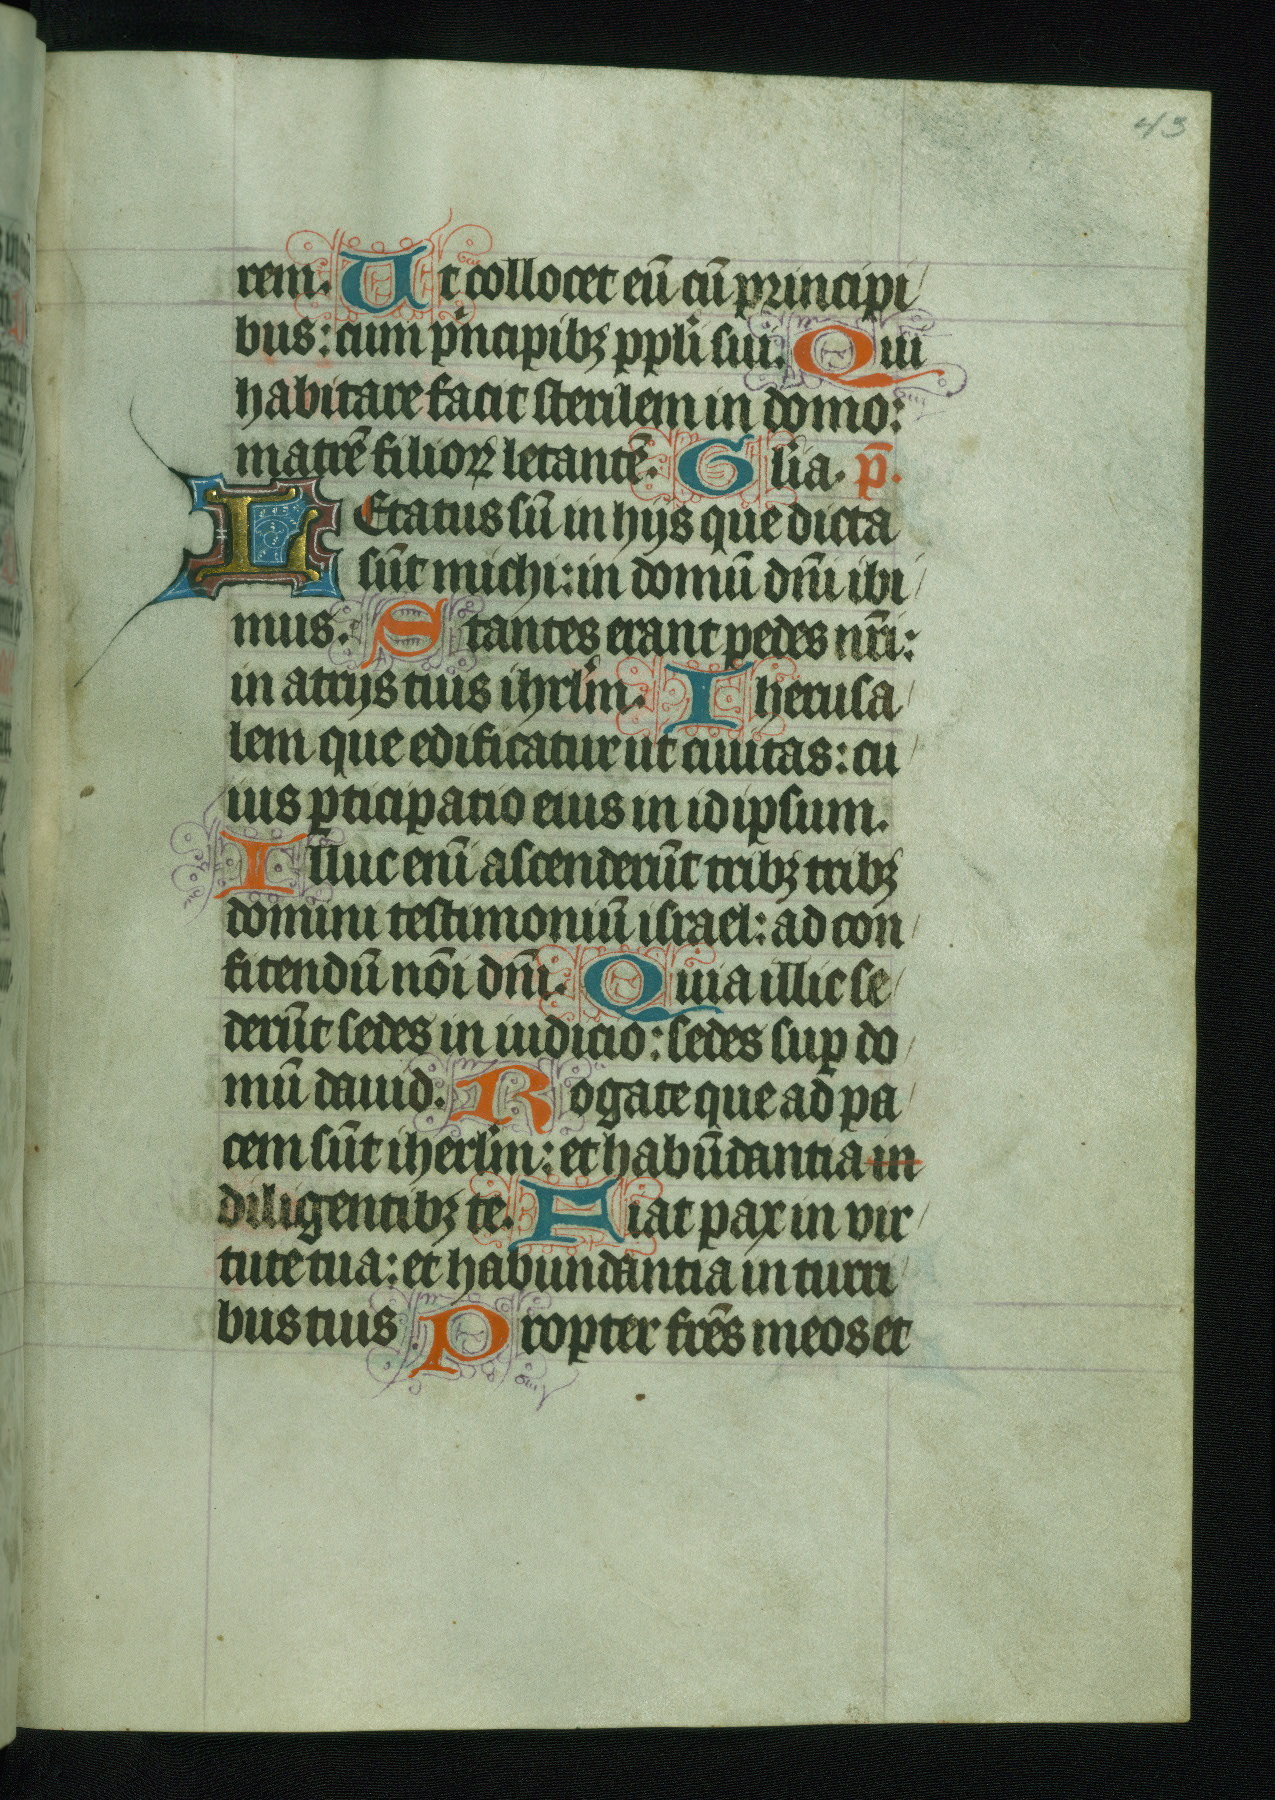 43
rem. Ut collocet eū cū principi
bus: cum pͥncipibꝫ ppli sui. Qui
habitare facit sterilem in domo:
matrē filioꝝ letantē. Glia. p̄.
LEtatus sū in hijs que dicta
sūt michi: in domū dn̄i ibi
mus. Stantes erant pedes nr̄i:
in atrijs tuis ihrlm̄. Iherusa
lem que edificatur ut ciuitas: cu
ius ꝑticipatio eius in idipsum.
Illuc enī ascenderūt tribꝫ tribꝫ
domini testimoniū israel: ad con
fitendū nōi dn̄i. Quia illic se
derūt sedes in iudicio: sedes suꝑ do
mū dauid. Rogate que ad pa
cem sūt iherlm̄: et habūdantia in
diligentibꝫ te. Fiat pax in vir
tute tua: et habundantia in turri
bus tuis Propter fr̄es meos et